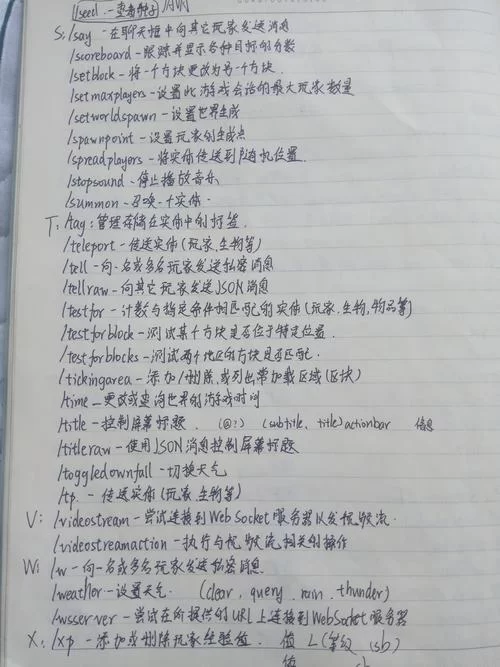 /seed - 查看种子
S: /say - 在聊天框中向其它玩家发送消息
/scoreboard - 跟踪并显示各种目标的分数
/setblock - 将一个方块更改为另一个方块.
/setmaxplayers - 设置此游戏会话的最大玩家数量
/setworldspawn - 设置世界生成
/spawnpoint - 设置玩家的生成点
/spreadplayers - 将实体传送到随机位置.
/stopsound - 停止播放音乐
/summon - 召唤一个实体.
T: /tag: 管理存储在实体中的标签
/teleport - 传送实体(玩家.生物等)
/tell - 向一名或多名玩家发送私密消息
/tellraw - 向其它玩家发送JSON消息
/testfor - 计数与指定条件相匹配的实体(玩家.生物,物品等)
/testforblock - 测试某个方块是否位于特定位置.
/testforblocks - 测试两个地区的方块是否匹配.
/tickingarea - 添加/删除,或列出常加载区域(区块)
/time - 更改或查询世界的游戏时间
/title - 控制屏幕标题. (@?) (subtitle, title) actionbar 信息
/titleraw - 使用JSON消息控制屏幕标题
/toggledownfall - 切换天气
/tp. - 传送实体(玩家.生物等)
V: /videostream - 尝试连接到WebSocket服务器以发视频流.
/videostreamaction - 执行与视频流相关的操作
W: /w - 向一名或多名玩家发送私密消息.
/weather - 设置天气. (clear, query, rain, thunder)
/wsserver - 尝试在所提供的URL上连接到WebSocket服务器
X: /xp - 添加或删除玩家经验值. 值 L(等级 sb)
值